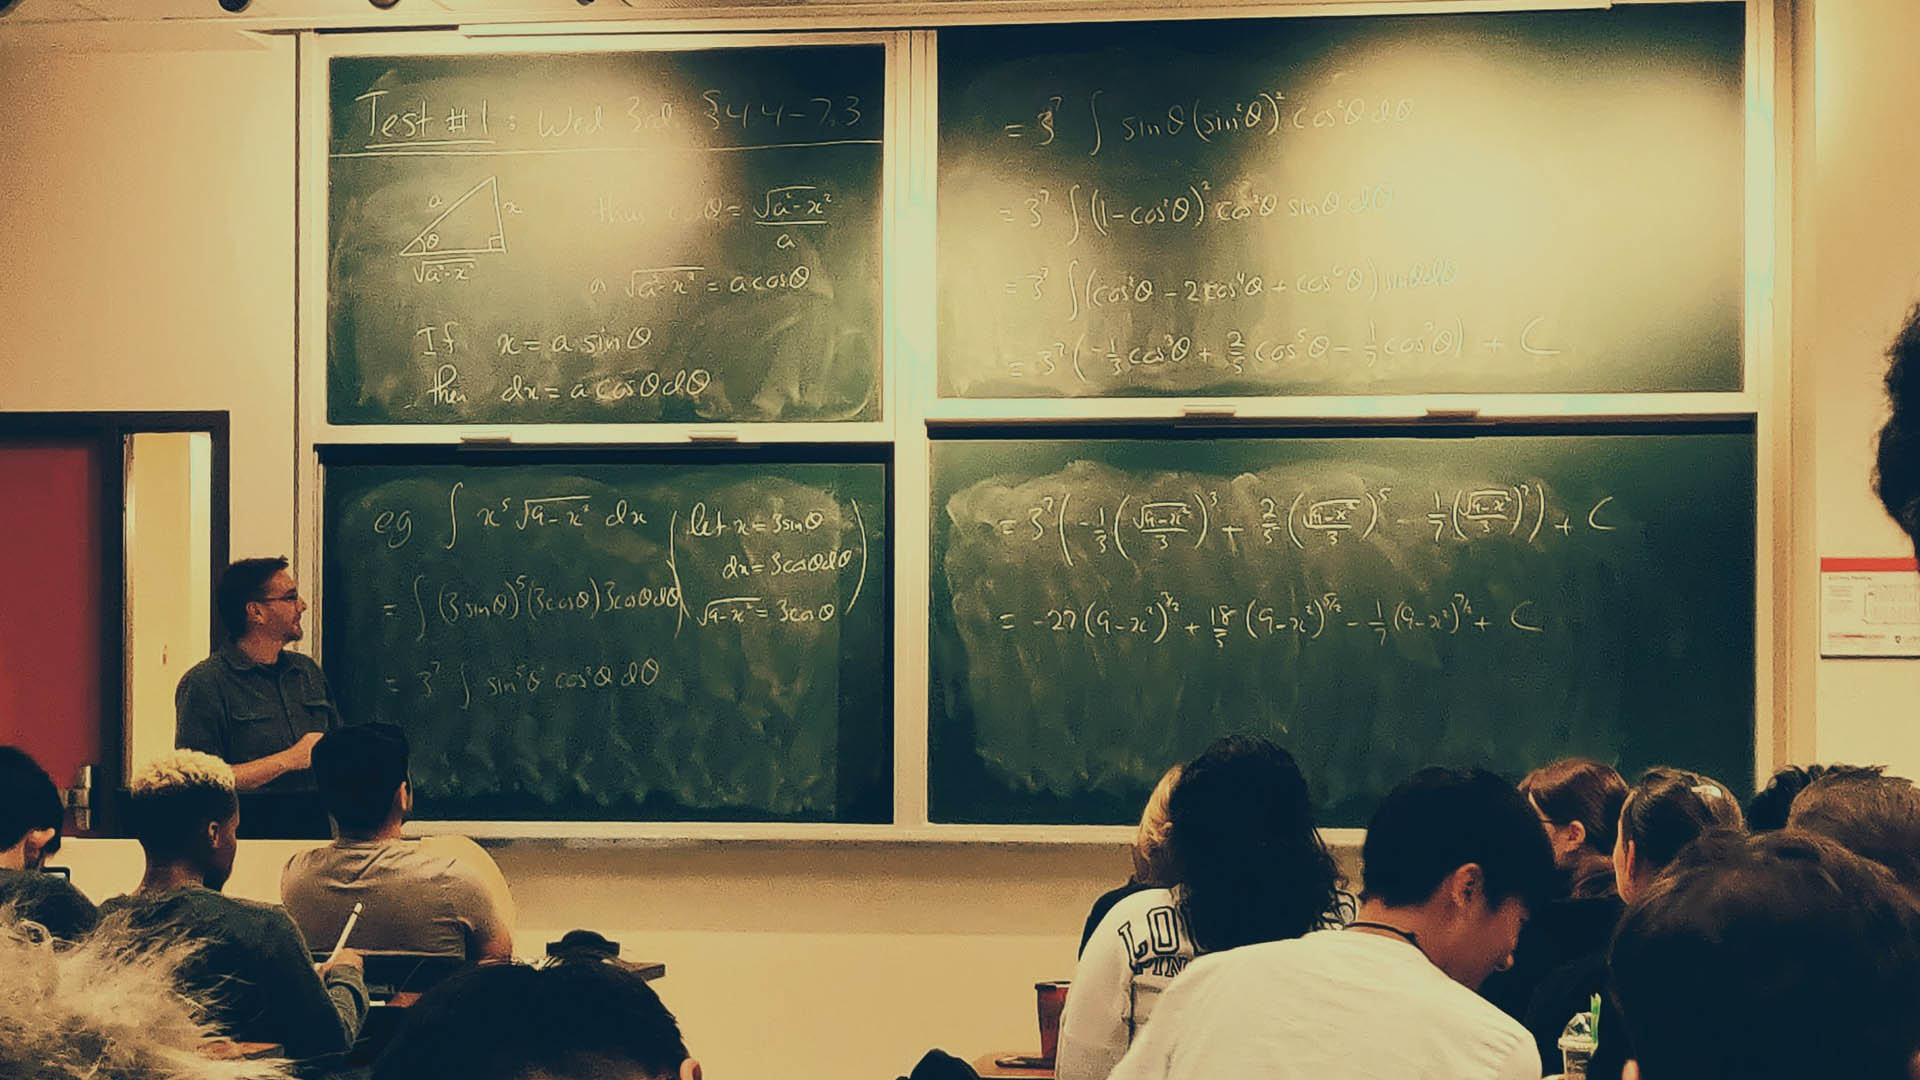 Test #1: Wed 3rd §4.4-7.3
a
x
θ
√a²-x²
thus cosθ = √a²-x² / a
or √a²-x² = a cosθ
If x = a sinθ
then dx = a cosθ dθ
eg ∫ x⁵ √9-x² dx (let x = 3sinθ
dx = 3cosθdθ
√9-x² = 3cosθ)
= ∫ (3sinθ)⁵ (3cosθ) 3cosθdθ
= 3⁷ ∫ sin⁵θ cos²θ dθ
= 3⁷ ∫ sinθ (sin²θ)² cos²θ dθ
= 3⁷ ∫ (1-cos²θ)² cos²θ sinθ dθ
= 3⁷ ∫ (cos²θ - 2cos⁴θ + cos⁶θ) sinθdθ
= 3⁷ (-1/3 cos³θ + 2/5 cos⁵θ - 1/7 cos⁷θ) + C
= 3⁷ (-1/3 (√9-x² / 3)³ + 2/5 (√9-x² / 3)⁵ - 1/7 (√9-x² / 3)⁷) + C
= -27 (9-x²)^3/2 + 18/5 (9-x²)^5/2 - 1/7 (9-x²)^7/2 + C
LO
PIN